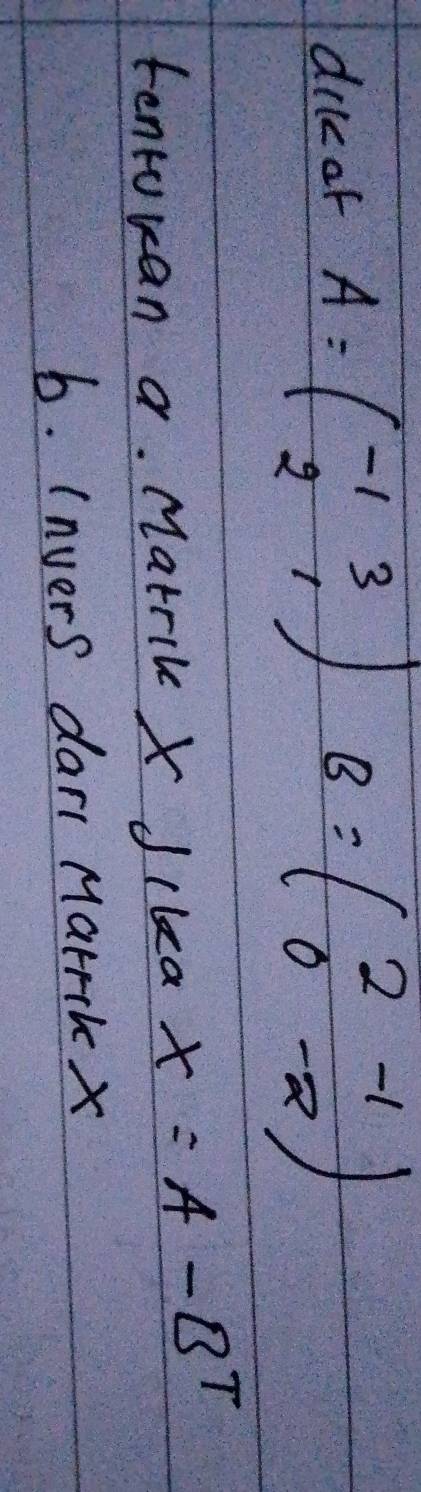 diket A = ( -1 3 2 1 ) B = ( 2 -1 0 -2 )
tentukan a. Matrik X Jika X = A - Bᵀ
b. Invers dari Matrik X